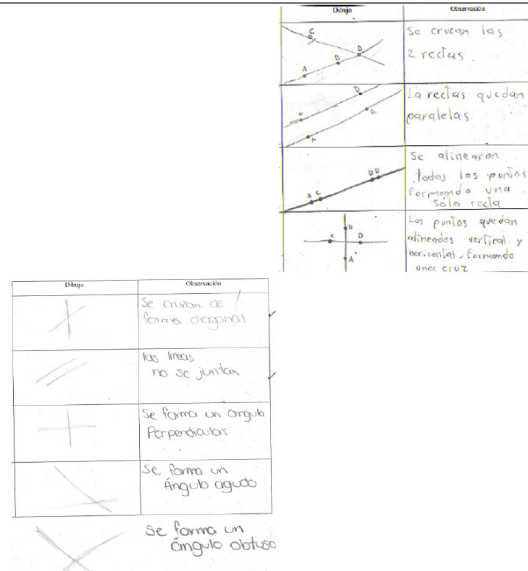 Dibujo
Observación
C
B
D
A
Se crucan las
2 rectas.
D
B
A
La rectas quedan
paralelas.
A C
B D
Se alinearon
todos los puntos
Formando una
sola recta
B
C
D
A
Los puntos quedan
alineados vertical y
horizontal, formando
una cruz
Dibujo
Observación
Se cruzan de
forma diagonal
las lineas
no se juntan
Se forma un angulo
Perpendicular
Se forma un
Ángulo agudo
Se forma un
ángulo obtuso